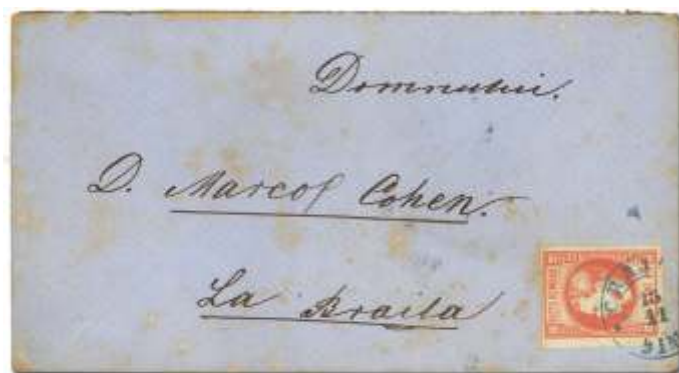 Domnului.
D. Marcos Cohen.
La Braila